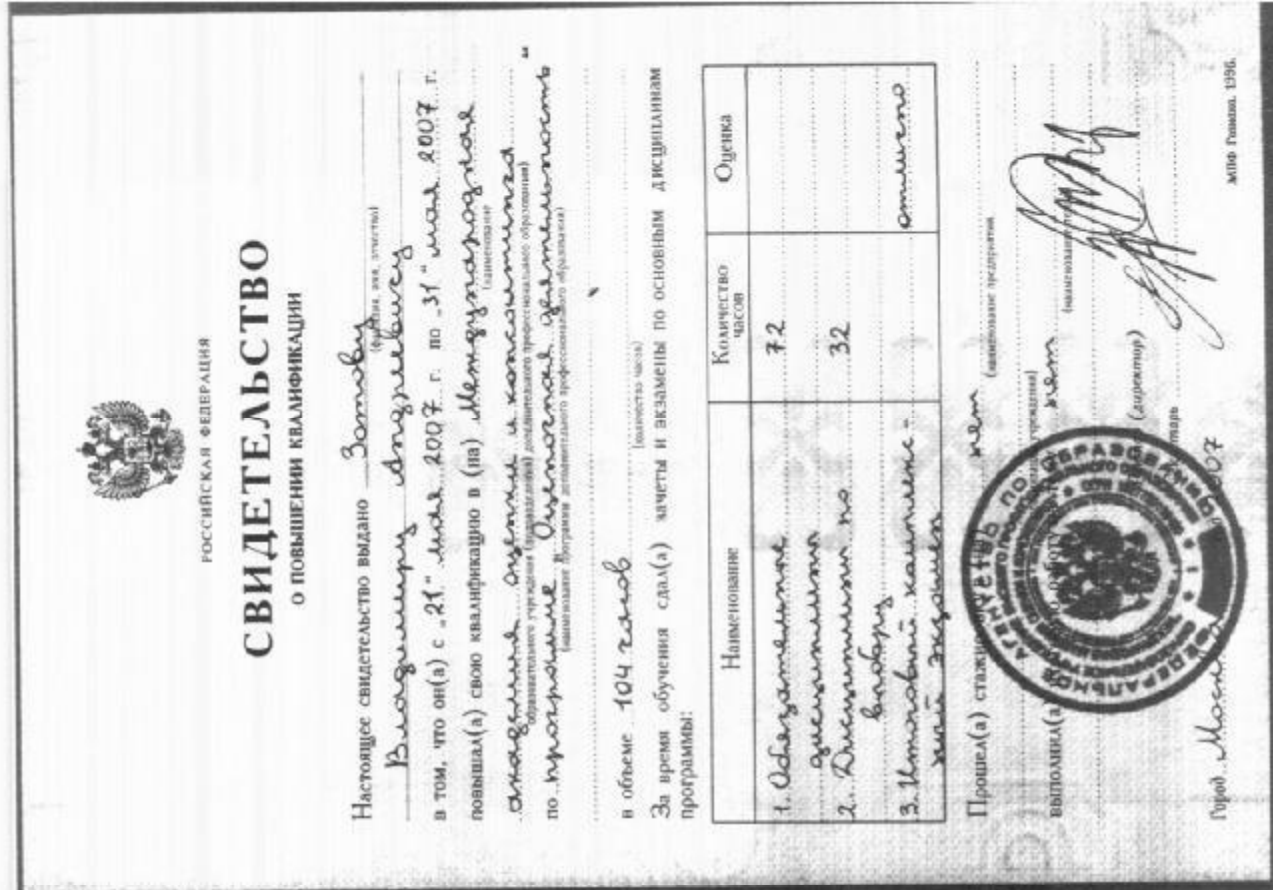 РОССИЙСКАЯ ФЕДЕРАЦИЯ
СВИДЕТЕЛЬСТВО
О ПОВЫШЕНИИ КВАЛИФИКАЦИИ
Настоящее свидетельство выдано Зотову
(фамилия, имя, отчество)
Владимиру Андреевичу
в том, что он(а) с „21“ мая 2007 г. по „31“ мая 2007 г.
повышал(а) свою квалификацию в (на) Международная
(наименование
академия оценки и консалтинга
образовательного учреждения (подразделения) дополнительного профессионального образования)
по программе „Оценочная деятельность“
(наименование программы дополнительного профессионального образования)
в объеме 104 часов
(количество часов)
За время обучения сдал(а) зачеты и экзамены по основным дисциплинам
программы:
Наименование Количество часов Оценка
1. Обязательные 72
дисциплины
2. Дисциплины по 32
выбору
3. Итоговый комплекс- отлично
ный экзамен
Прошел(а) нет
(наименование предприятия,
учреждения)
выполнил(а) нет
(наименование
ФЕДЕРАЛЬНОЕ АГЕНТСТВО ПО ОБРАЗОВАНИЮ
(директор)
Город Москва 07
МПФ Гознака. 1996.